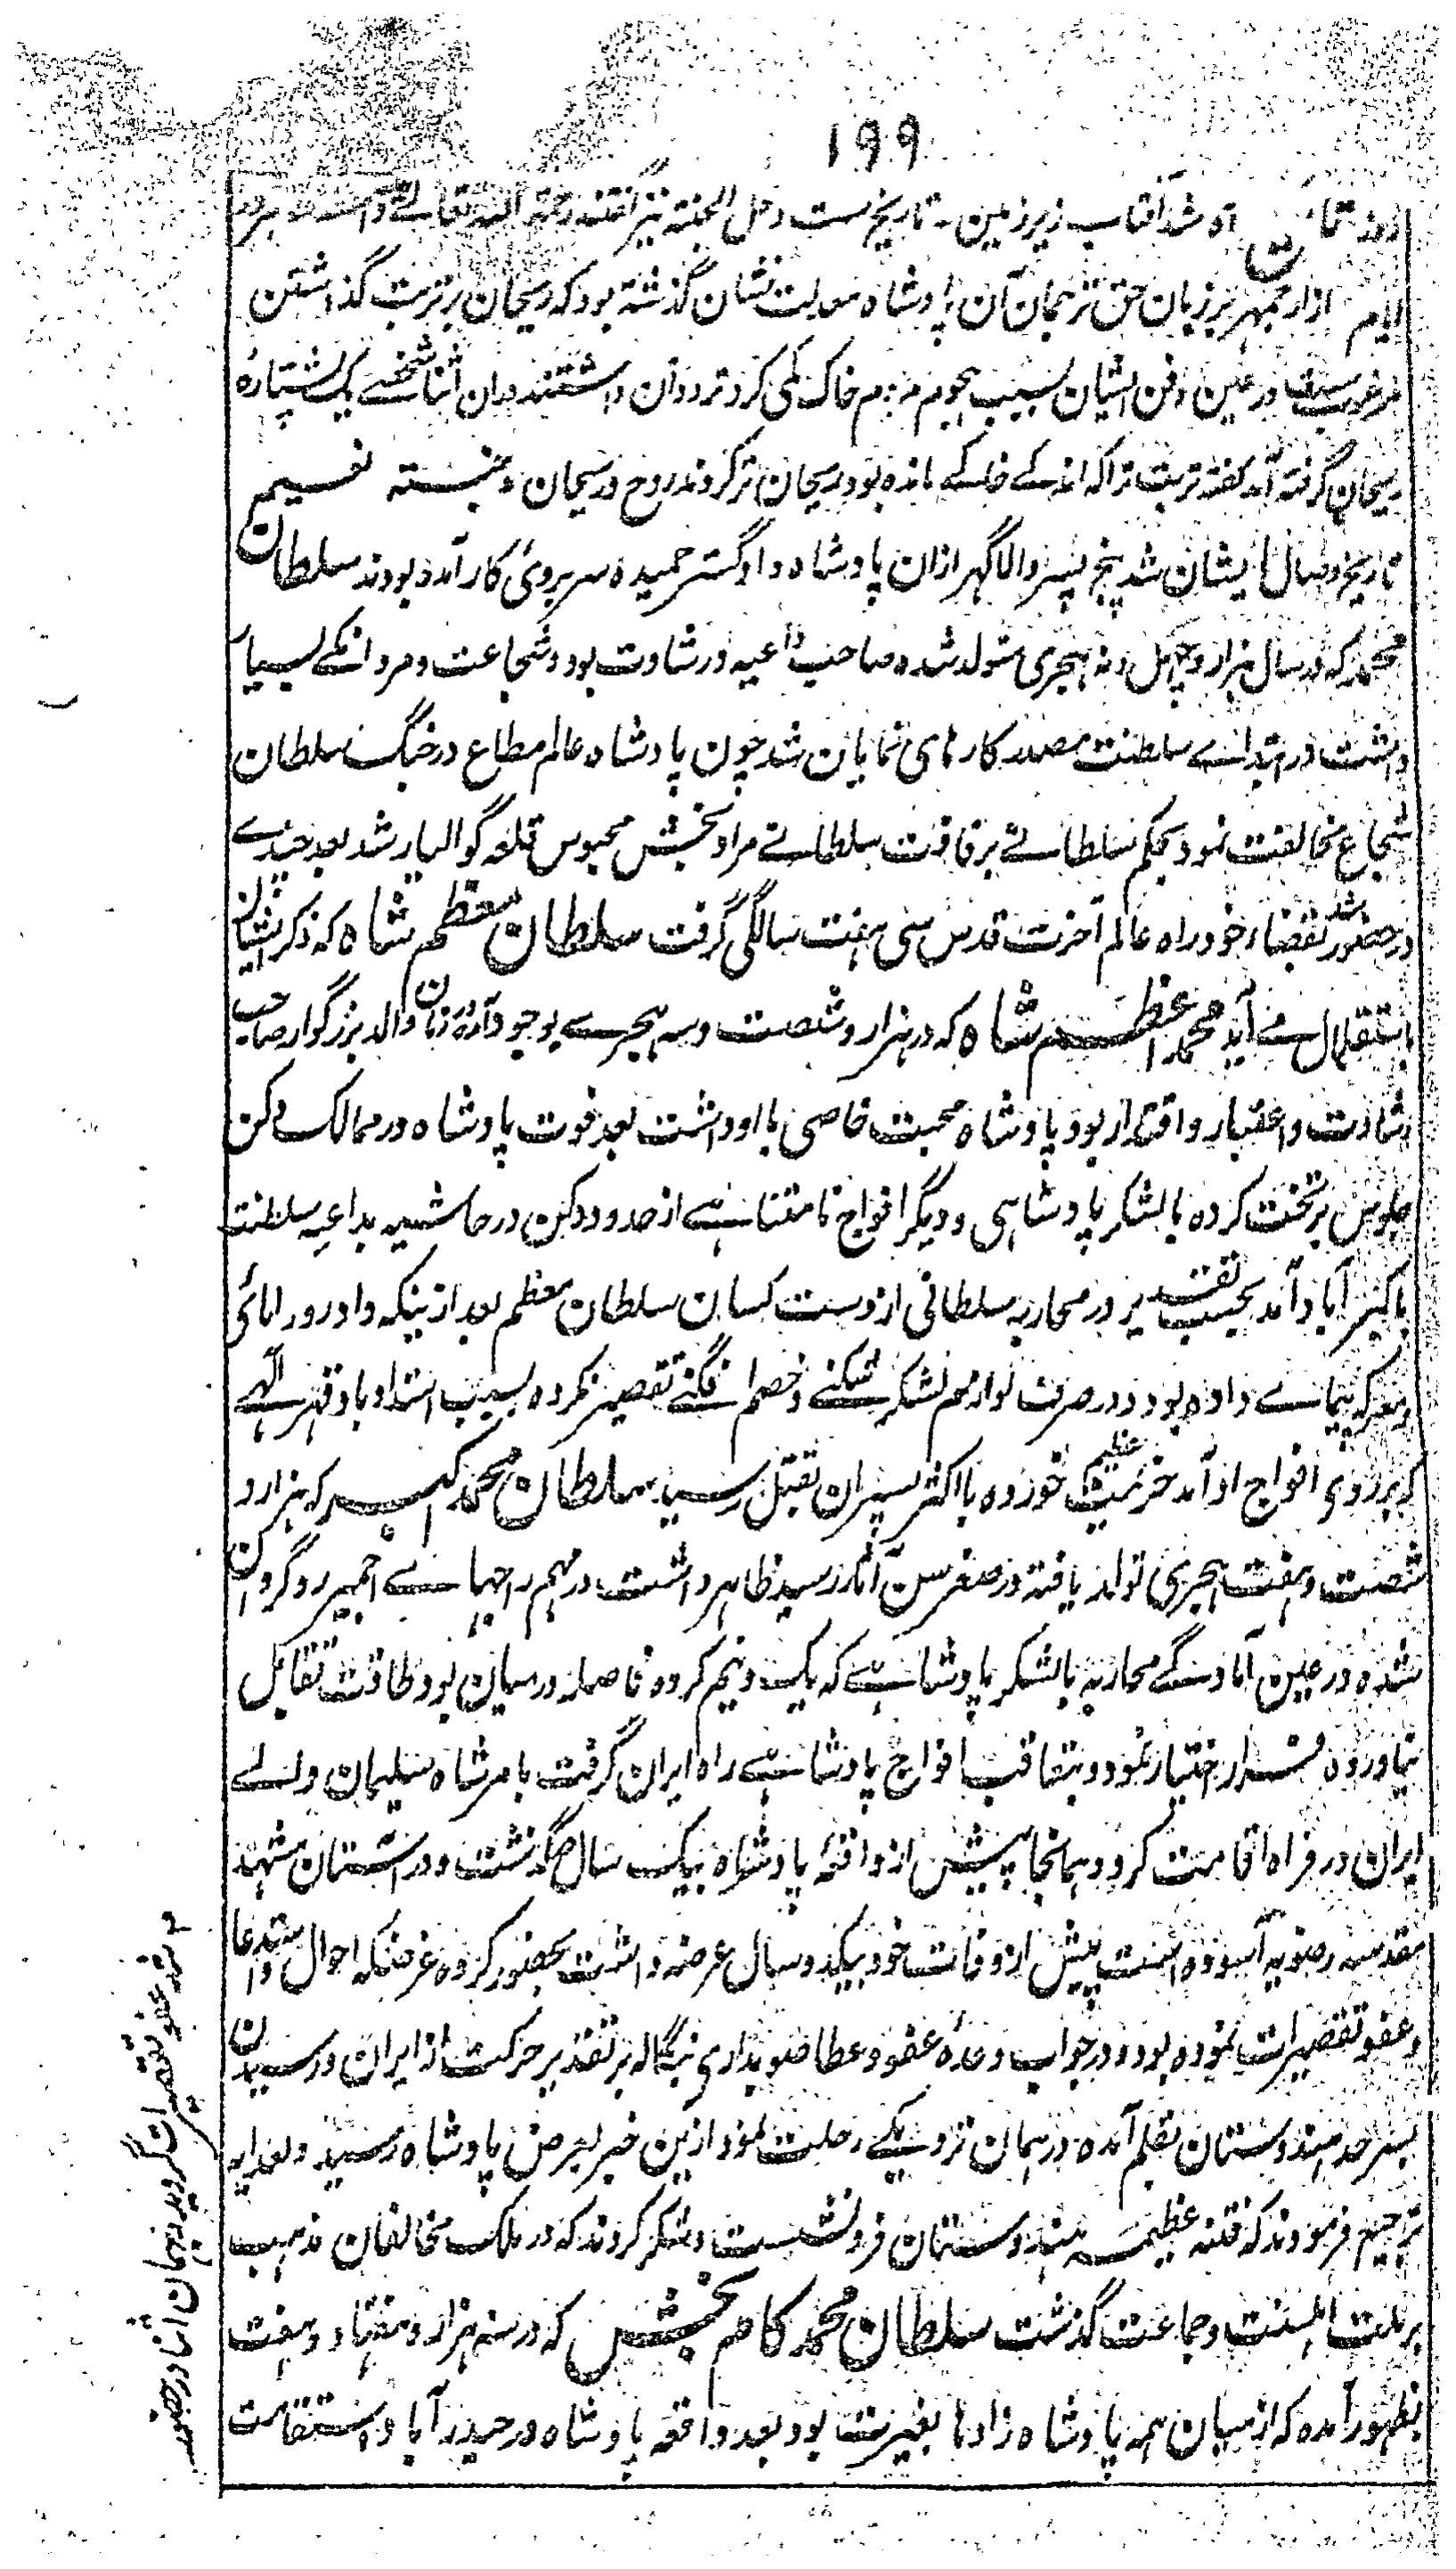 ۱۹۹
شد آفتاب زیر زمین۔ تاریخ ست دخل الجنة نیز گفتند رحمة الله تعالے
ایام از ارجمهر بر زبان حق ترجمان آن پادشاه معدلت نشان گذشته بود که ریحان بر تربت گذاشتن
مرغوبست در عین دفن ایشان بسبب هجوم مردم خاک کمی کرد تردد آن داشتند دران اثنا شخصے یک پشتاره
ریحان گرفته آمد گفته تربت را که اندکے خاکے مانده بود بریحان تر کردند روح و ریحان و جنته نعیم
تاریخ وصال ایشان شد پنج پسر والاگهر ازان پادشاه دادگستر حمیده سیر بروی کار آمده بودند سلطان
محمد که در سال هزار و چهل و نه هجری متولد شده صاحب داعیه و رشادت بود و شجاعت و مردانگے بسیار
داشت در ابتداے سلطنت مصدر کارهای نمایان شد چون پادشاه عالم مطاع در جنگ سلطان
شجاع مخالفت نمود بحکم سلطانے برفاقت سلطانے مراد بخش محبوس قلعه گوالیار شد بعد چندے
در حضور شد بقضاء خود راه عالم آخرت قدس سی هفت سالگی گرفت سلطان معظم شاه که ذکر ایشان
باستقلال مے آید محمد اعظم شاه که در هزار و شصت و سه هجرے بوجود آمده زمان والد بزرگوار صاحب
رشادت و اعتبار و اقتدار بود پادشاه محبت خاصی با او داشت بعد فوت پادشاه در ممالک دکن
جلوس بر تخت کرده با لشکر پادشاهی و دیگر افواج نامتناهے از حدود دکن در حاشیه بداعیه سلطنت
باکبرآباد آمد بحسب تقدیر در محاربه سلطانی از دست کسان سلطان معظم بعد ازینکه داد رورانائی
و معرکه پیماے داده بود و در صرف لوازم لشکر شکنے و خصم افگنے تقصیر نکرده بسبب اشتداد باد قهر الٰهے
که بر روی افواج او آمد هزیمت عظیم خورده با اکثر پسران بقتل رسید سلطان محمد اکبر که هزار و
شصت و هفت هجری تولد یافته در صغر سن آثار رسید ظاهر داشت در مهم راجهاے اجمیر روگردان
شده در عین آمادگے محاربه با لشکر پادشاهے که یک و نیم کروه فاصله در میان بود طاقت تقابل
نیاورده فرار اختیار نمود و بتعاقب افواج پادشاهے راه ایران گرفت بامر شاه سلیمان والے
ایران در فراه اقامت کرد و همانجا پیش از واقعه پادشاه بیک سال گذشت و در آستان مشهد
مقدسه رضویه آسوده است پیش از وفات خود بیکدو سال عرضه داشت بحضور کرده عرضکه احوال و استدعا
و عفو تقصیرات نموده بود و در جواب وعده عفو و عطا صوبداری بنگاله بر تقدیر حرکت از ایران و رسیدن
بسرحد هندوستان بقلم آمده در همان نزدیکے رحلت نمود ازین خبر بعرض پادشاه رسید و بعد از
ترجیع فرمودند که فتنه عظیمه هندوستان فرو نشست و شکر کردند که در ملک مخالفان مذهب
بر ملت اهلسنت و جماعت گذشت سلطان محمد کام بخش که در سنه هزار و هفتاد و هفت
بظهور آمده که از میان همه پادشاه زادها بغیرت بود بعد واقعه پادشاه در حیدرآباد استقامت
شد عفو تقصیرات گردید درهمان اثنا در حضور